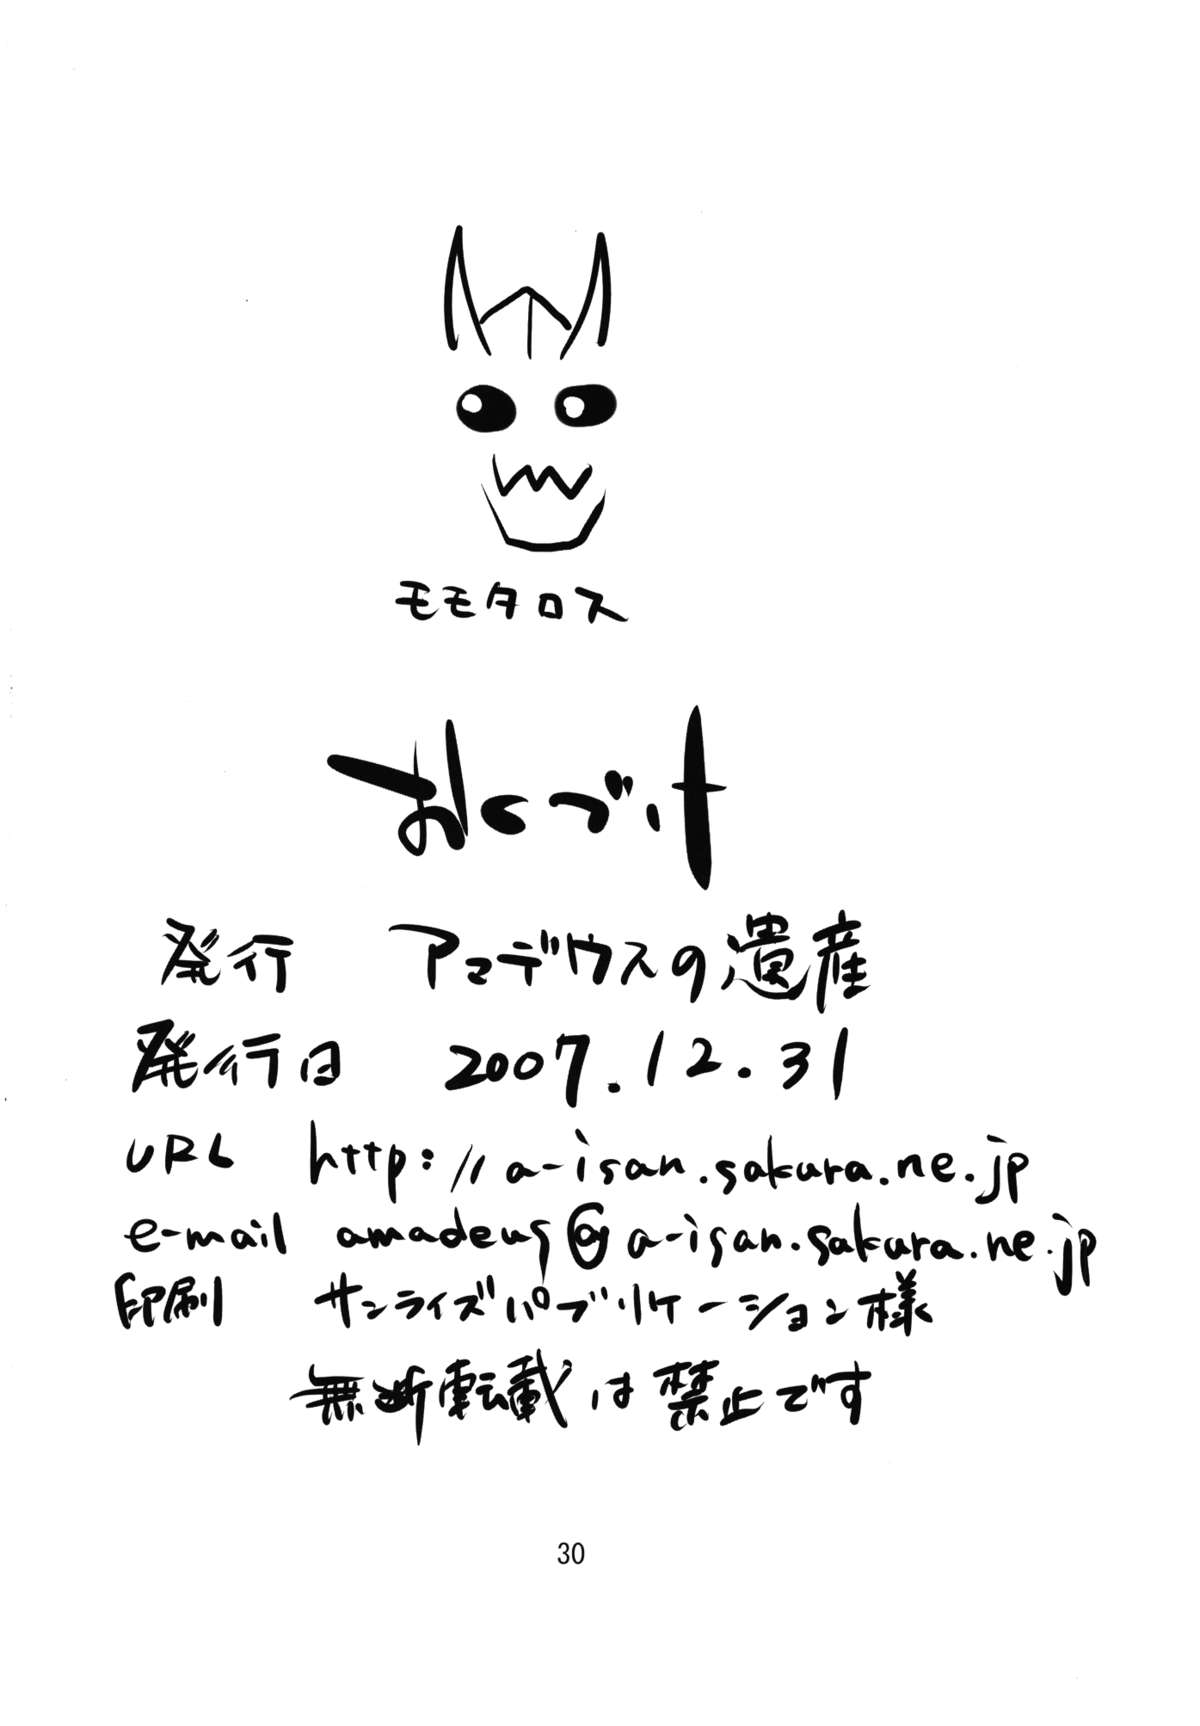 モモタロス
おくづけ
発行 アマデウスの遺産
発行日 2007.12.31
URL http://a-isan.sakura.ne.jp
e-mail amadeus@a-isan.sakura.ne.jp
印刷 サンライズパブリケーション様
無断転載は禁止です
30